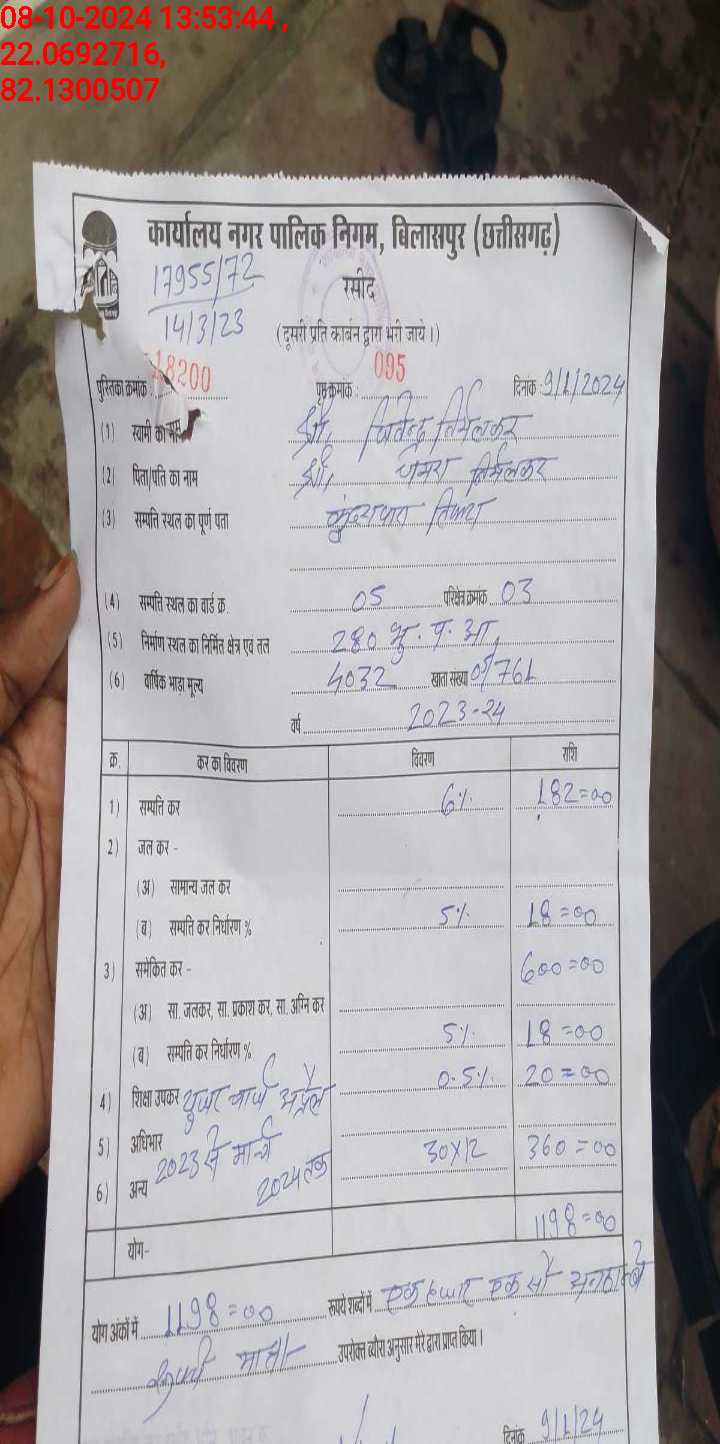 08-10-2024 13:53:44 ,
22.0692716,
82.1300507
कार्यालय नगर पालिक निगम, बिलासपुर (छत्तीसगढ़)
17955/72
रसीद
14/3/23
(दूसरी प्रति कार्बन द्वारा भरी जाये।)
पुस्तिका क्रमांक : 18200 पृष्ठ क्रमांक : 095 दिनांक 9/1/2024
(1) स्वामी का नाम श्री, निर्मलकर
(2) पिता/पति का नाम श्री, निर्मलकर
(3) सम्पत्ति स्थल का पूर्ण पता
(4) सम्पत्ति स्थल का वार्ड क्र. 05 परिक्षेत्र क्रमांक 03
(5) निर्माण स्थल का निर्मित क्षेत्र एवं तल 280 भु. प. आ,
(6) वार्षिक भाड़ा मूल्य 4032 खाता संख्या 761
वर्ष 2023-24
क्र. कर का विवरण विवरण राशि
1) सम्पत्ति कर 6% 182=00
2) जल कर -
(अ) सामान्य जल कर
(ब) सम्पत्ति कर निर्धारण % 5% 18=00
3) समेकित कर - 600=00
(अ) सा. जलकर, सा. प्रकाश कर, सा. अग्नि कर
(ब) सम्पत्ति कर निर्धारण % 5% 18=00
4) शिक्षा उपकर 0.5% 20=00
चार्ज अप्रैल
5) अधिभार 2023 से मार्च 30X12 360=00
6) अन्य 2024 तक
योग- 1198=00
योग अंकों में 1198=00 रूपये शब्दों में एक हजार एक सौ अन्ठानबे
रूपये मात्र/- उपरोक्त ब्यौरा अनुसार मेरे द्वारा प्राप्त किया।
दिनांक 9/1/24